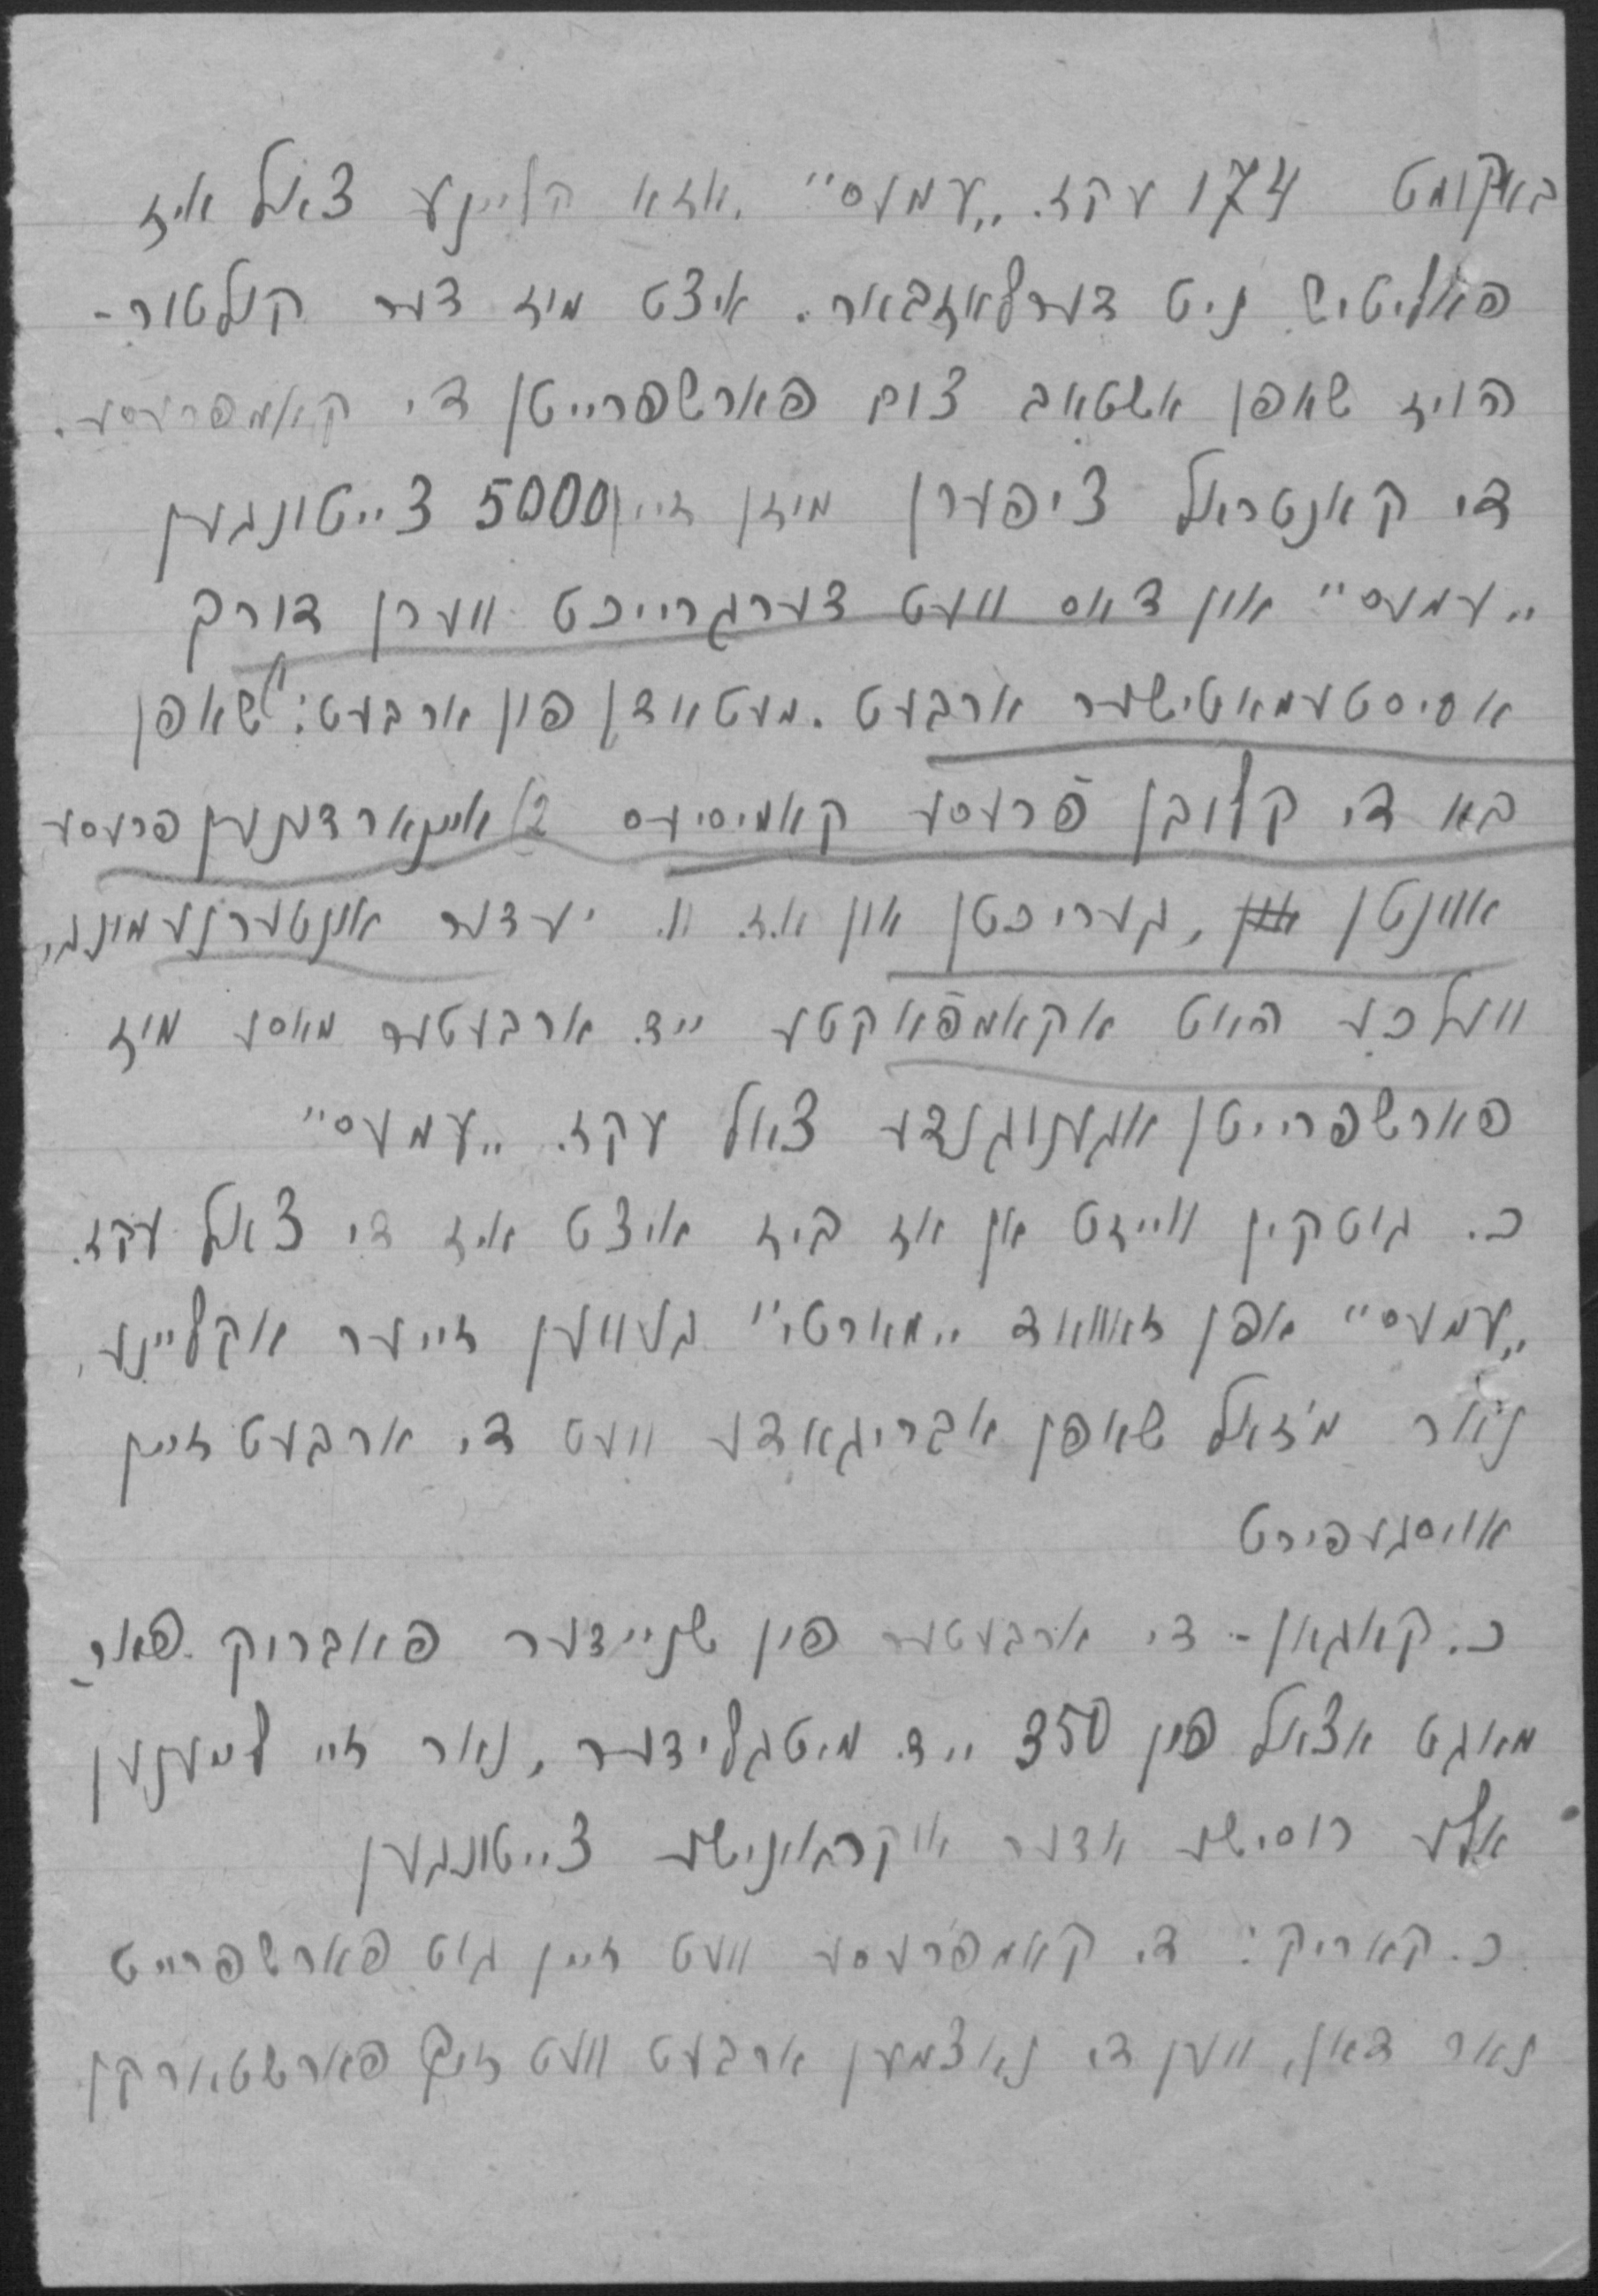 באקומט 174 עקז. „עמעס" . אזא קליינע צאל איז
פאליטיש ניט דערלאזבאר. איצט מוז דער קולטור-
הויז שאפן אשטאב צום פארשפרייטן די קאמפרעסע.
די קאנטראל ציפערן מוזן זיין 5000 צייטונגען
„עמעס" און דאס וועט דערגרייכט ווערן דורך
אסיסטעמאטישער ארבעט. מעטאדן פון ארבעט: 1) שאפן
בא די קלובן פרעסע קאמיסיעס 2) איינארדנען פרעסע
אוונטן , געריכטן און א.ז. וו. יעדער אונטערנעמונג,
וועלכע האט אקאמפאקטע ייד. ארבעטער מאסע מוז
פארשפרייטן אגענוגנדע צאל עקז. „עמעס"
כ. גוטקין ווייזט אן אז ביז איצט איז די צאל עקז.
„עמעס" אפן זאוואד „מארטי" געווען זייער אקליינע,
נאר מ'זאל שאפן אבריגאדע וועט די ארבעט זיין
אויסגעפירט
כ. קאגאן - די ארבעטער פון שניידער פאבריק פאר-
מאגט אצאל פון 350 ייד. מיטגלידער, נאר זיי לייענען
אלע רוסישע אדער אוקראינישע צייטונגען
כ. קאריק: די קאמפרעסע וועט זיין גוט פארשפרייט
נאר דאן, ווען די נאצמען ארבעט וועט זיך פארשטארקן